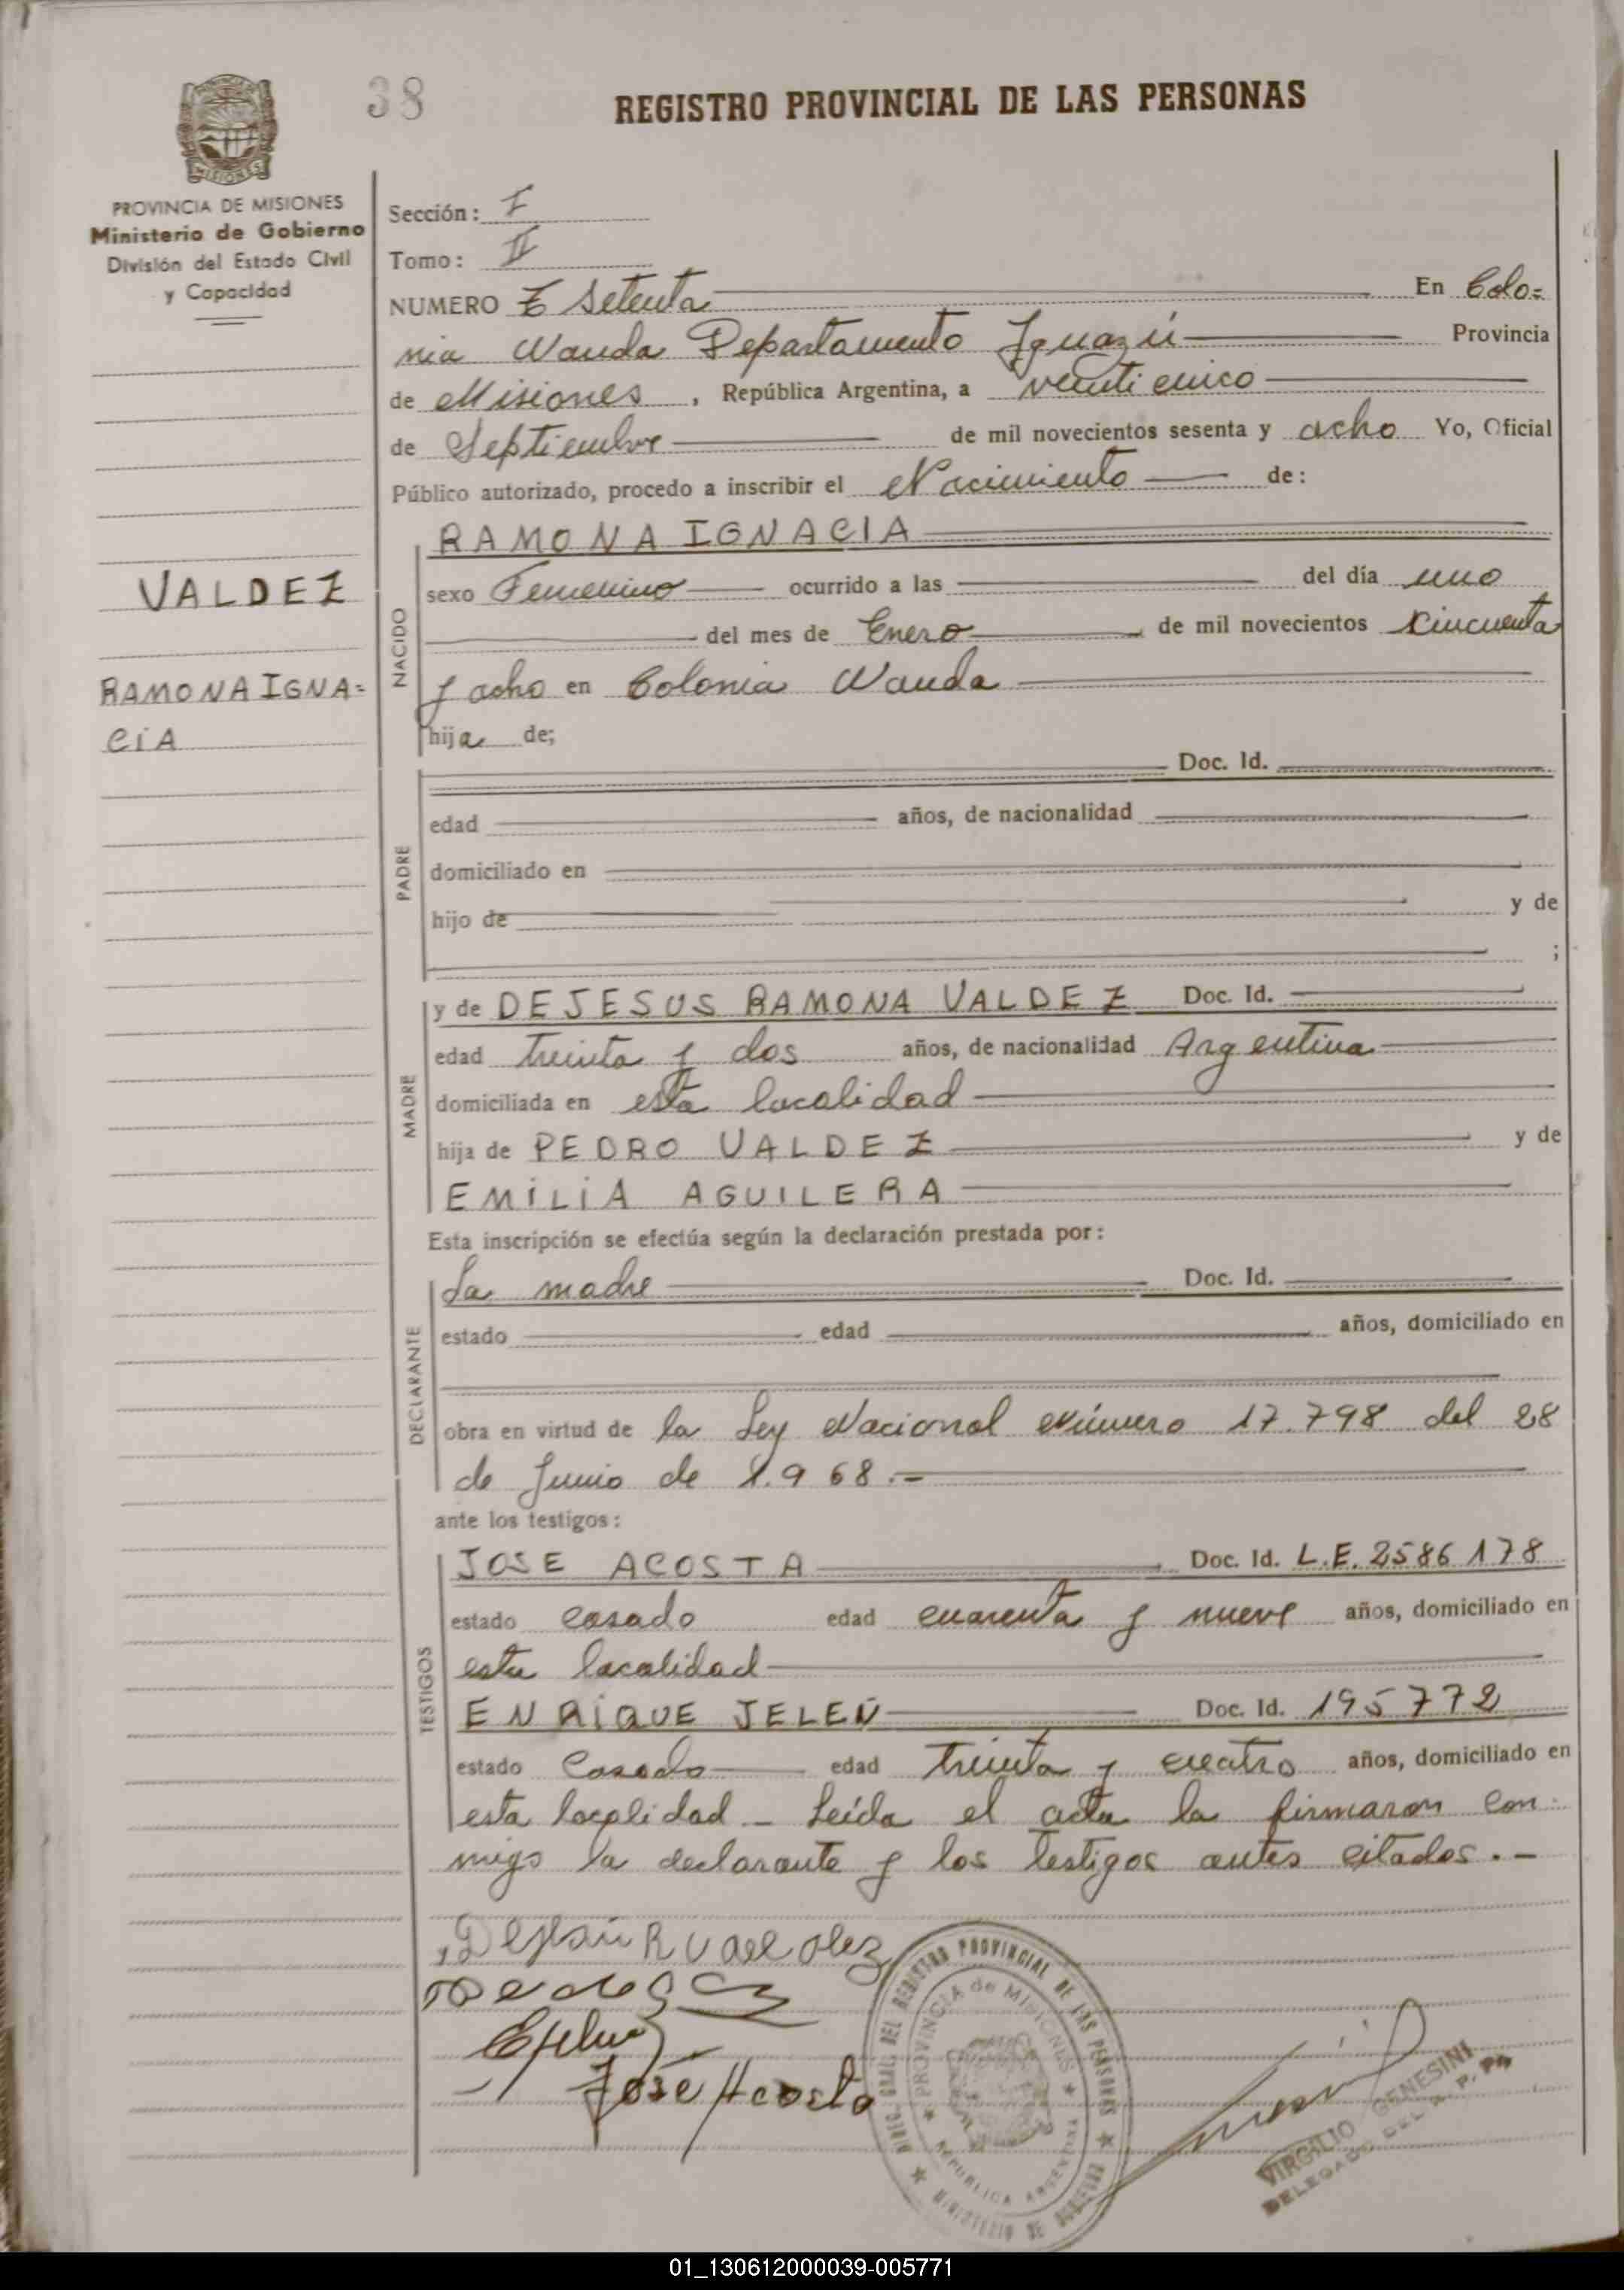 38
REGISTRO PROVINCIAL DE LAS PERSONAS
MISIONES
PROVINCIA DE MISIONES
Ministerio de Gobierno
División del Estado Civil
y Capacidad
Sección: I
Tomo: II
NUMERO Setenta En Colo=
nia Wanda Departamento Iguazú Provincia
de Misiones, República Argentina, a veinticinco
de Septiembre de mil novecientos sesenta y ocho Yo, Oficial
Público autorizado, procedo a inscribir el Nacimiento de:
VALDEZ
RAMONA IGNA=
CIA
NACIDO
RAMONA IGNACIA
sexo Femenino ocurrido a las del día uno
del mes de Enero de mil novecientos cincuenta
y ocho en Colonia Wanda
hija de;
PADRE
Doc. Id.
edad años, de nacionalidad
domiciliado en
hijo de y de
;
MADRE
y de DEJESUS RAMONA VALDEZ Doc. Id.
edad treinta y dos años, de nacionalidad Argentina
domiciliada en esta localidad
hija de PEDRO VALDEZ y de
EMILIA AGUILERA
Esta inscripción se efectúa según la declaración prestada por:
DECLARANTE
La madre Doc. Id.
estado edad años, domiciliado en
obra en virtud de la Ley Nacional Número 17.798 del 28
de Junio de 1.968.-
ante los testigos:
TESTIGOS
JOSE ACOSTA Doc. Id. L.E. 2586178
estado casado edad cuarenta y nueve años, domiciliado en
esta localidad
ENRIQUE JELEÑ Doc. Id. 195772
estado Casado edad treinta y cuatro años, domiciliado en
esta localidad _ Leída el acta la firmaron con
migo la declarante y los testigos antes citados.-
José Acosta
DIREC. GRAL. DEL REGISTRO PROVINCIAL DE LAS PERSONAS
PROVINCIA de MISIONES
REPUBLICA ARGENTINA
MINISTERIO DE GOBIERNO
VIRGILIO GENESINI
DELEGADO DEL R. P. Ps
01_130612000039-005771